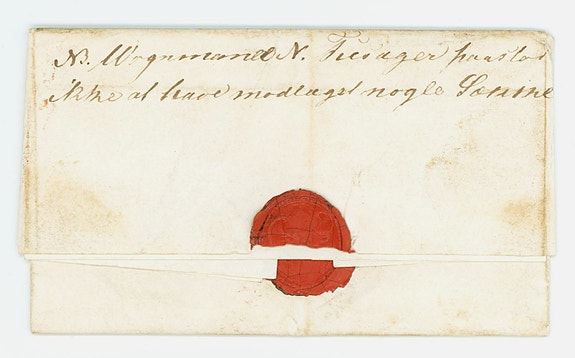 NB. Vognmand N. Fuisager paastod
ikke at have modtaget nogle Sæume